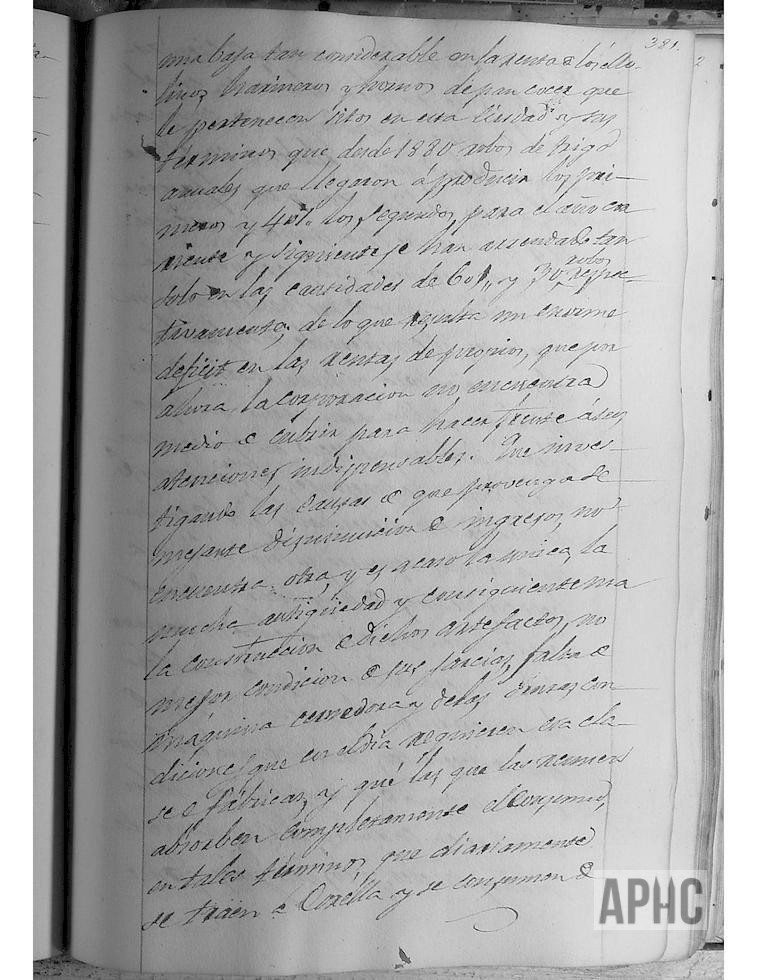 381.
una baja tan considerable en la renta de los Mo-
linos harineros y hornos de pan cocer que
le pertenecen sitos en esta Ciudad y sus
terminos que desde 1880 robos de trigo
anuales que llegaron a producir los pri-
meros y 401. los segundos para el año cor
riente y siguiente se han arrendado tan
solo en las cantidades de 601,, y 30 robos respec-
tivamente; de lo que resulta un enorme
deficit en las rentas de propios, que por
ahora la corporacion no encuentra
medio de cubrir para hacer frente á sus
atenciones indispensables. Que inves-
tigando las causas de que provenga se
mejante disminucion de ingresos, no
encuentra otra, y es acaso la unica, la
mucha antigüedad y consiguiente ma
la construccion de dichos artefactos, no
mejor condicion de sus farcias, falta de
maquina cernedora y demas con
diciones que en el dia requieren esa cla
se de fábricas, y que las que las reunen
absorben completamente el consumo,
en tales terminos que diariamente
se traen de Corella y se consumen de
APHC